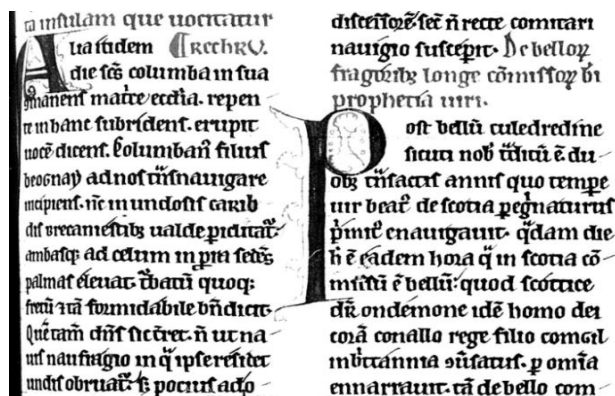 ta insulam que uocitatur
Alia itidem ¶RechRU.
die scs columba in sua
ꝯmanens mat͛re eccl̃ia. repen
te in hanc subridens. erupit
uocẽ dicens. Columban̾ filius
beognaỹ ad nos t̃nsnauigare
incipiens. nc̃ in undosis carib
dis brecamẽstib; ualde piditat̃.
ambasq; ad celum in p̃m sedẽs
palmas eleuat. t̃batũ quoq;
fretũ ⁊ tã formidabile bñdicit.
Quẽ tam̃ dñs sic t̃ret. ñ ut na
uis naufragio in q̃ ipse residet
undis obruat̃. s; pocius ad
discẽssorẽ. sec̃ ñ recte comitari
nauigio suscepit. De belloꝝ
fragorib; longe cõmissoꝝ bi
prophetia uiri.
Post bellũ culedredine
sicuti nob̃ t̃ditũ ẽ du
ob; t̃nsactis annis quo tempe
uir beat̾ de scotia pegnaturus
p̃mit̾ enauigauit. q̃dam die
h̃ ẽ eadem hora q̃ in scotia cõ
missũ ẽ bellũ: quod scottice
dr̃ ondemone idẽ homo dei
corã conallo rege filio comgil
in b̃ttannia ꝯũsatus. p om̃ia
ennarrauit. tã de bello com